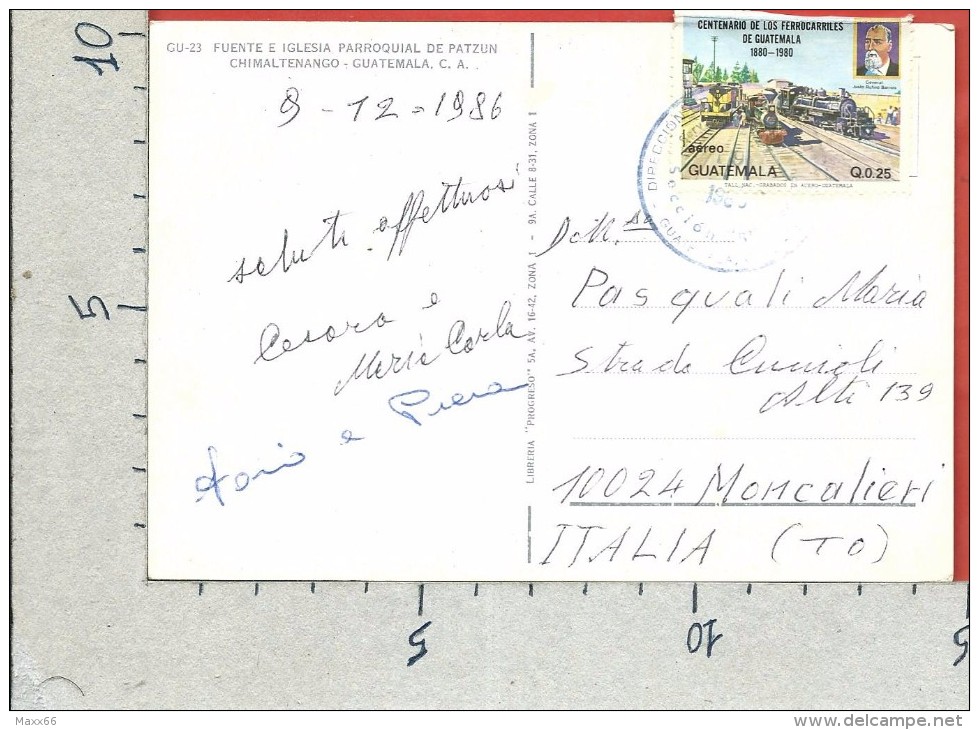 GU-23 FUENTE E IGLESIA PARROQUIAL DE PATZUN
CHIMALTENANGO - GUATEMALA, C. A.
9-12=1986
saluti affettuosi
Cesara e
Maria Carla
e Piera
LIBRERIA "PROGRESO" 5A. AV. 16-42, ZONA 1 - 9A. CALLE 8-31, ZONA 1
CENTENARIO DE LOS FERROCARRILES
DE GUATEMALA
1880-1980
General
Justo Rufino Barrios
aéreo
GUATEMALA
Q.0.25
TALL. NAC.-GRABADOS EN ACERO-GUATEMALA
DIRECCION
Pasquali Maria
Strada Cunioli
Alti 139
10024 Moncalieri
ITALIA (TO)
10
5
5
10
5
Maxx66
www.delcampe.net